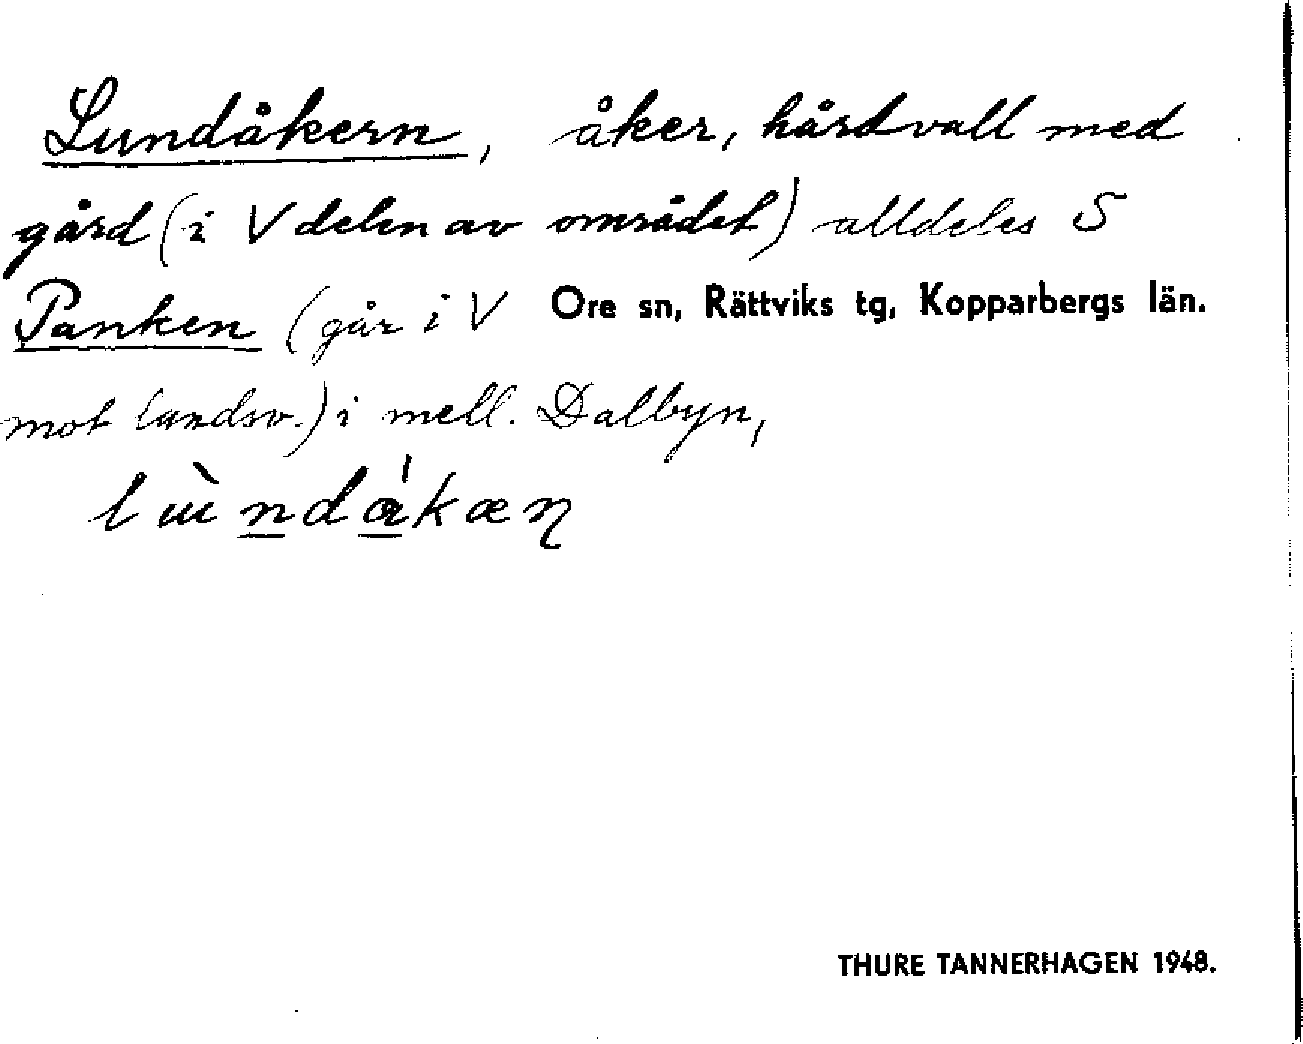 Lundåkern, åker, hårdvall med
gård (i V delen av området) alldeles S
Panken (går i V
Ore sn, Rättviks tg, Kopparbergs län.
mot landsv.) i mell. Dalbyn,
THURE TANNERHAGEN 1948.